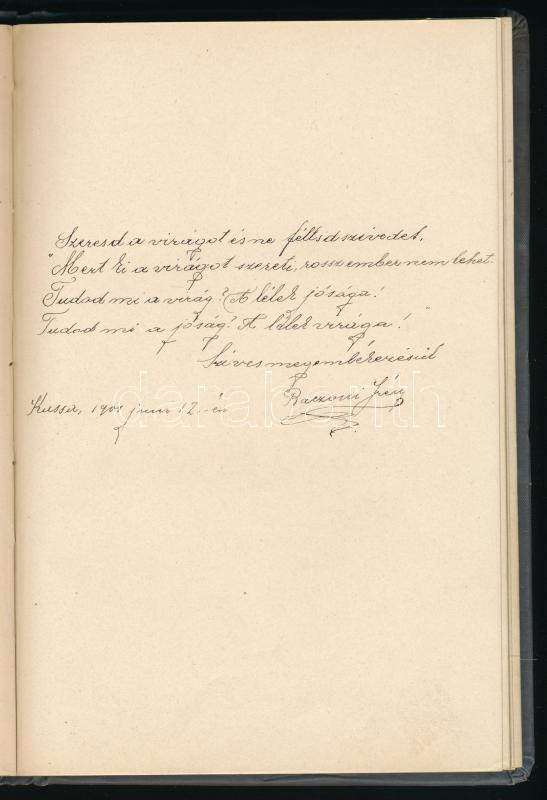 Szeresd a virágot és ne féltsd szivedet,
"Mert ki a virágot szereti, rossz ember nem lehet.
Tudod mi a virág? A lélek jósága!
Tudod mi a jóság? A lélek virága!"
Szives megemlékezésül
Irén
1901 juni 12.-én
darabanth